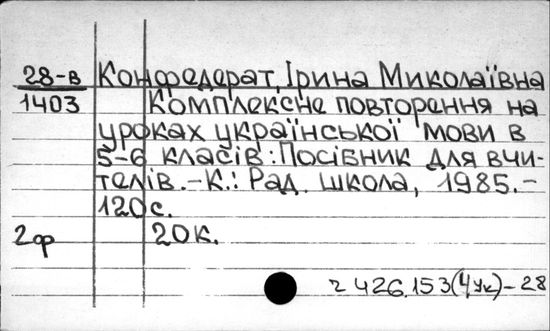 28-в Конфедерат, Ірина Миколаївна
1403 Комплексне повторення на
уроках української мови в
5-6 класів: Посібник для вчи-
телів.-К.: Рад. школа, 1985.-
120с.
2ф 20к.
ч 426.153(4Ук)-28